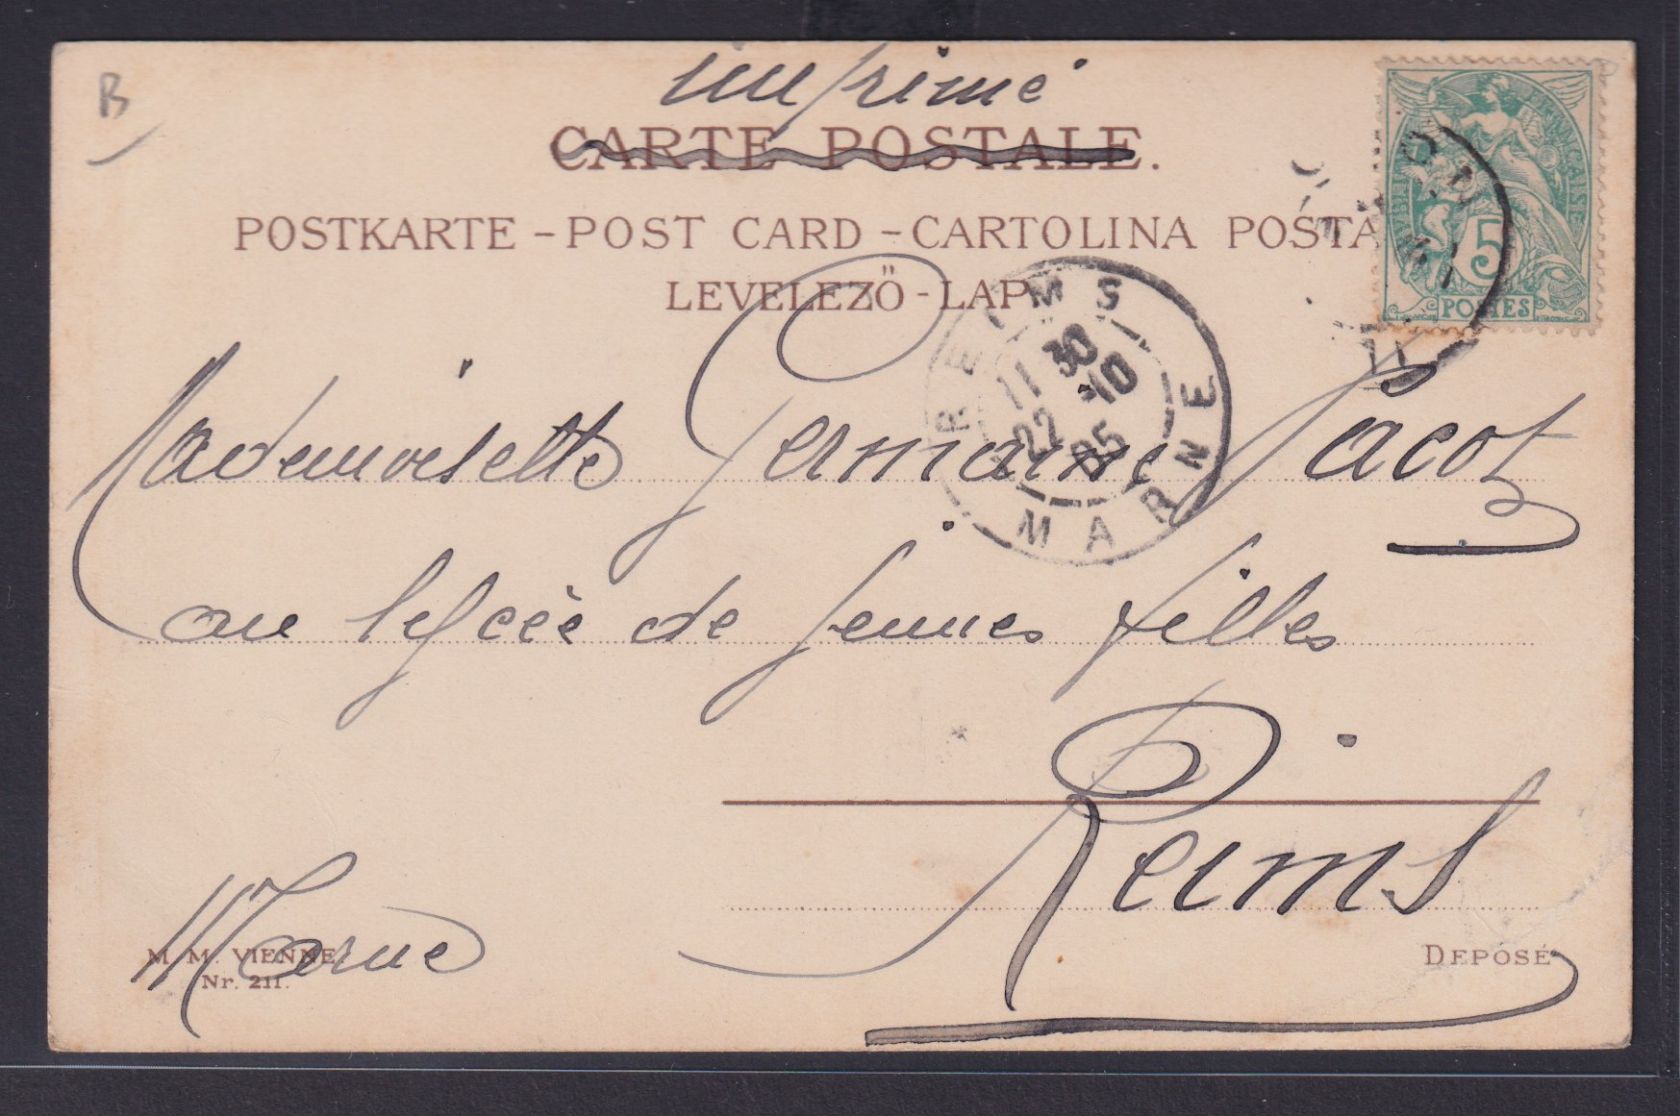 B
imprimé
CARTE POSTALE.
POSTKARTE - POST CARD - CARTOLINA POSTA
LEVELEZŐ - LAP
RÉPUBLIQUE FRANÇAISE
5
POSTES
REIMS
11 30
22 -10
05
MARNE
Mademoiselle Germaine Jacot
au lycée de Jeunes filles
Reims
Marne
M. M. VIENNE
Nr. 211.
DEPOSÉ